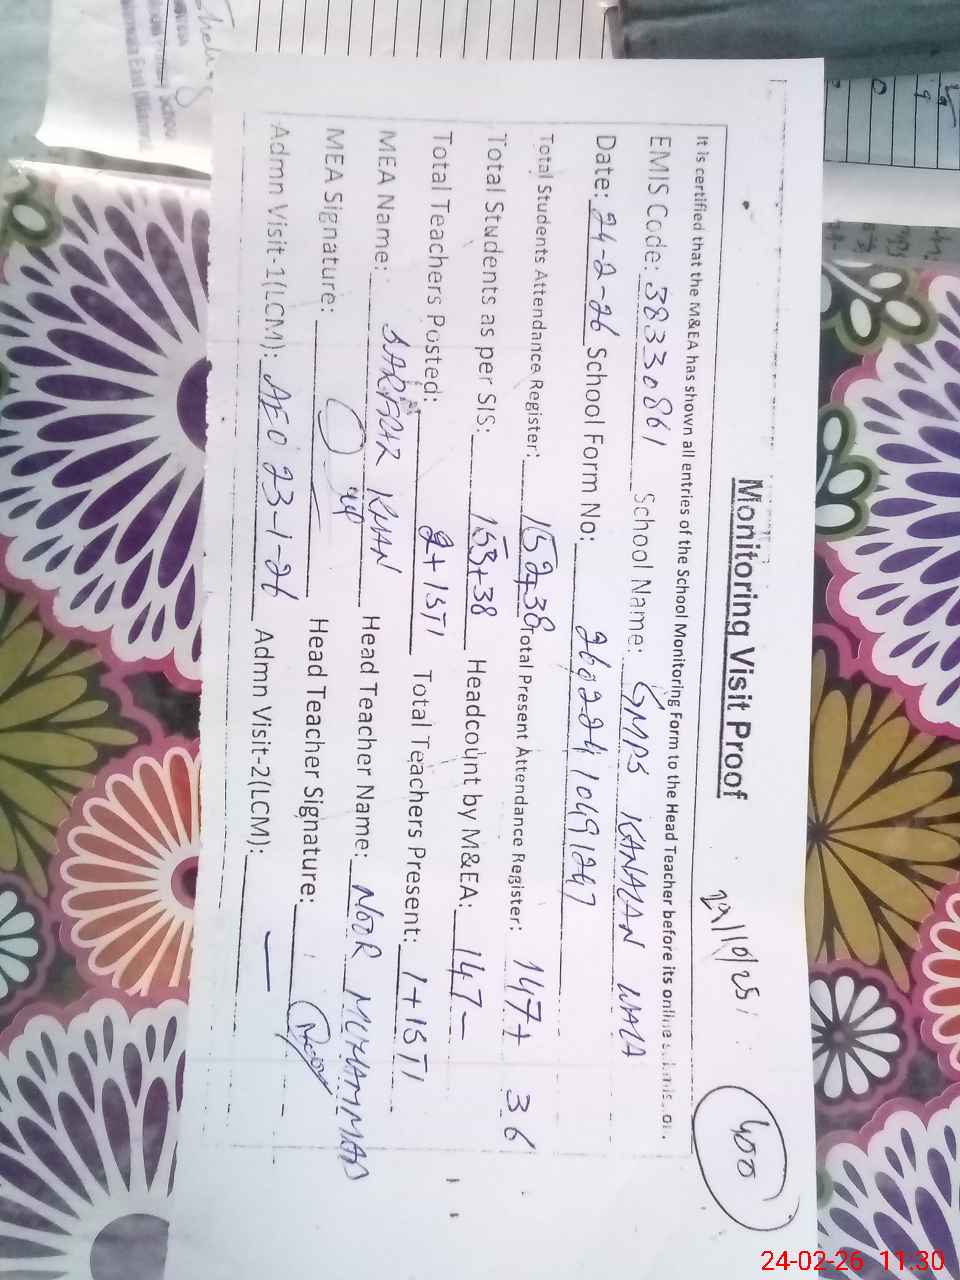 Monitoring Visit Proof
29/10/25
400
It is certified that the M&EA has shown all entries of the School Monitoring Form to the Head Teacher before its online
EMIS Code: 38330861 School Name: GMPS KANALAN WALA
Date: 24-2-26 School Form No: 26022410491247
Total Students Attendance Register: 152+38 Total Present Attendance Register: 147+ 36
Total Students as per SIS: 153+38 Headcount by M&EA: 147-
Total Teachers Posted: 2+1STI Total Teachers Present: 1+1STI
MEA Name: SARFRAZ KHAN Head Teacher Name: NOOR MUHAMMAD
MEA Signature: Head Teacher Signature:
Admn Visit-1(LCM): AEO 23-1-26 Admn Visit-2(LCM): —
24-02-26 11:30